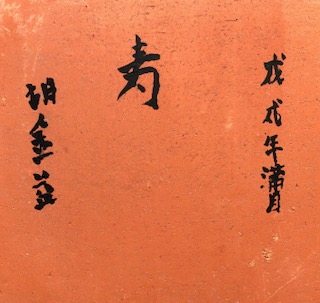 戊戌年蒲月
寿
胡金益